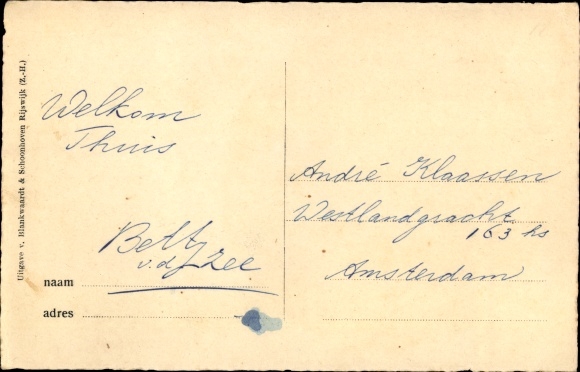 Uitgave v. Blankwaardt & Schoonhoven Rijswijk (Z.-H.)
Welkom
Thuis
Betty
v.d. Zee
naam
adres
André Klaassen
Westlandgracht
163 hs
Amsterdam